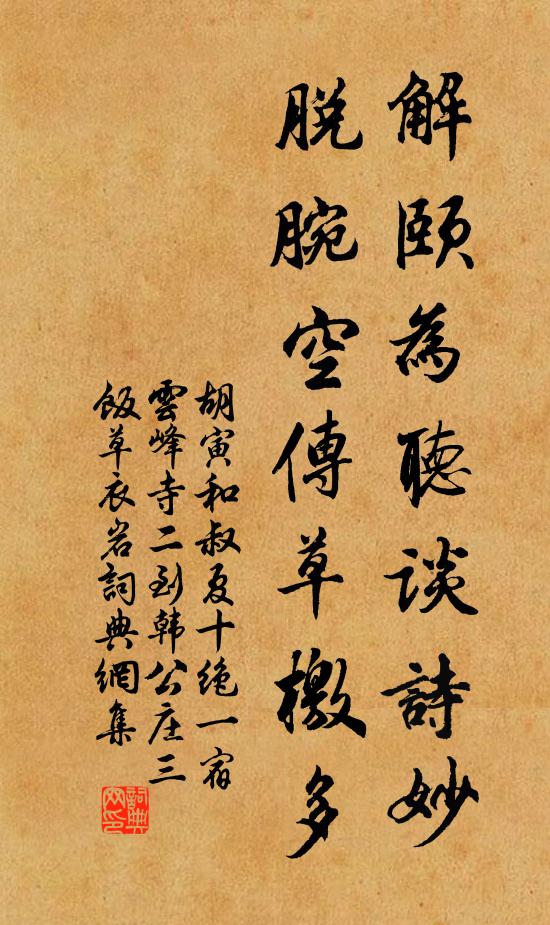 解頤為聽談詩妙
脫腕空傳草檄多
胡寅和叔夏十绝一宿
雲峰寺二到韩公庄三
飯草衣岩詞典網集
詞典网印